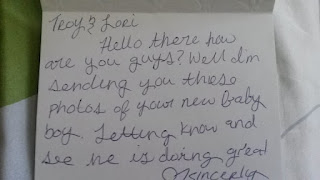 Troy & Lori
Hello there how
are you guys? Well I'm
sending you these
photos of your new baby
boy. Letting know and
see he is doing great
Sincerely